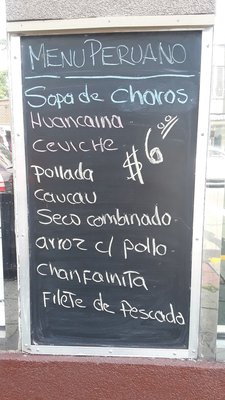 MENU PERUANO
Sopa de choros
Huancaina
ceviche
$6.00
pollada
caucau
Seco combinado
arroz c/ pollo
chanfainita
Filete de pescada